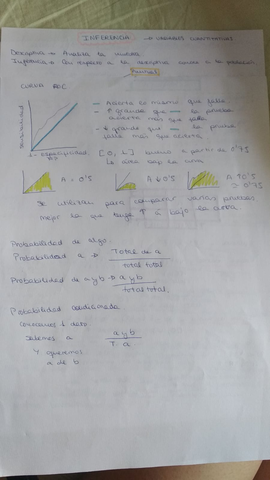 INFERENCIA → VARIABLES CUANTITATIVAS
Descriptiva → Analiza la muestra
Inferencia → Con respecto a la descriptiva vamos a la población.
CURVA ROC
Sensibilidad
1 - especificidad
— Acierta lo mismo que falla.
— + grande que — la prueba
acierta más que falla
— + grande que — la prueba
falla más que acierta
[0, 1] a partir de 0'75
A = 0'5
A < 0'5
A > 0'5
> 0'75
Se utilizan para comparar varias pruebas
mejor la que tenga ↑ A bajo la curva.
Probabilidad de algo.
Probabilidad a → Total de a
total total
Probabilidad de a y b → a y b
total total.
Probabilidad condicionada
Conocemos 1 dato
Sabemos a
a y b
T. a
Y queremos
a de b